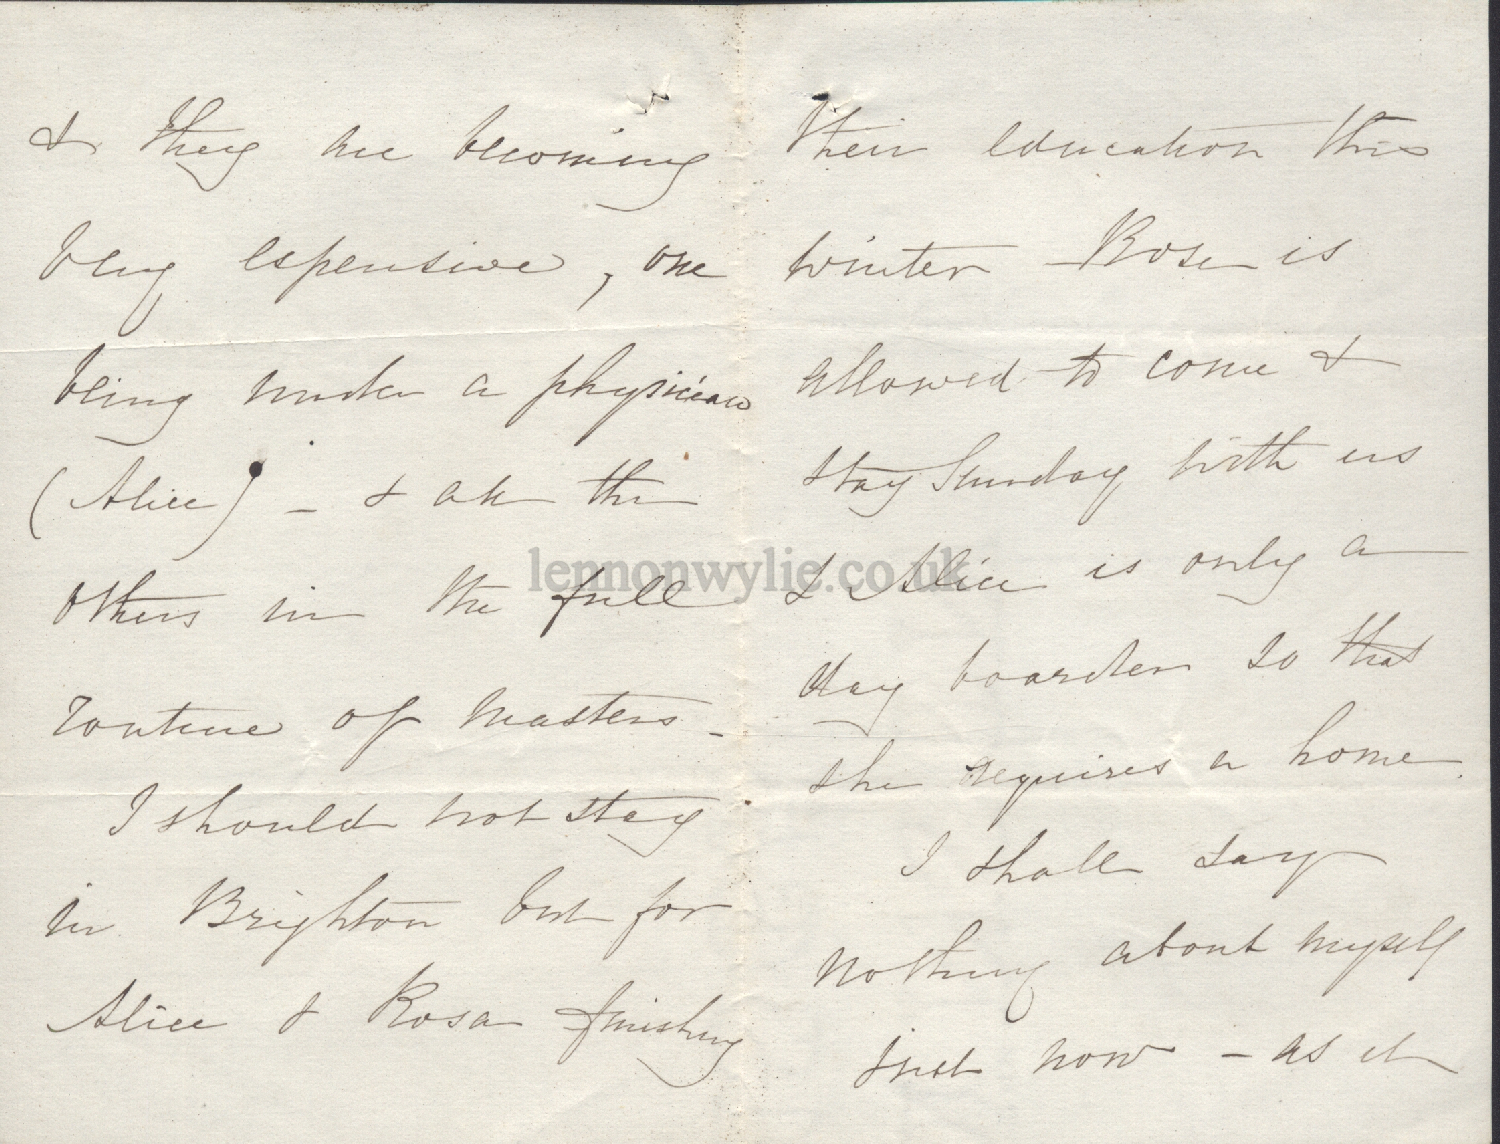 & they are becoming
very expensive, one
being under a physician
(Alice) - & all the
others in the full
routine of masters -
I should not stay
in Brighton but for
Alice & Rosa finishing
their education this
winter - Rosa is
allowed to come &
stay Sunday with us
& Alice is only a
day boarder so that
she requires a home.
I shall say
nothing about myself
just now - as it
lennonwylie.co.uk